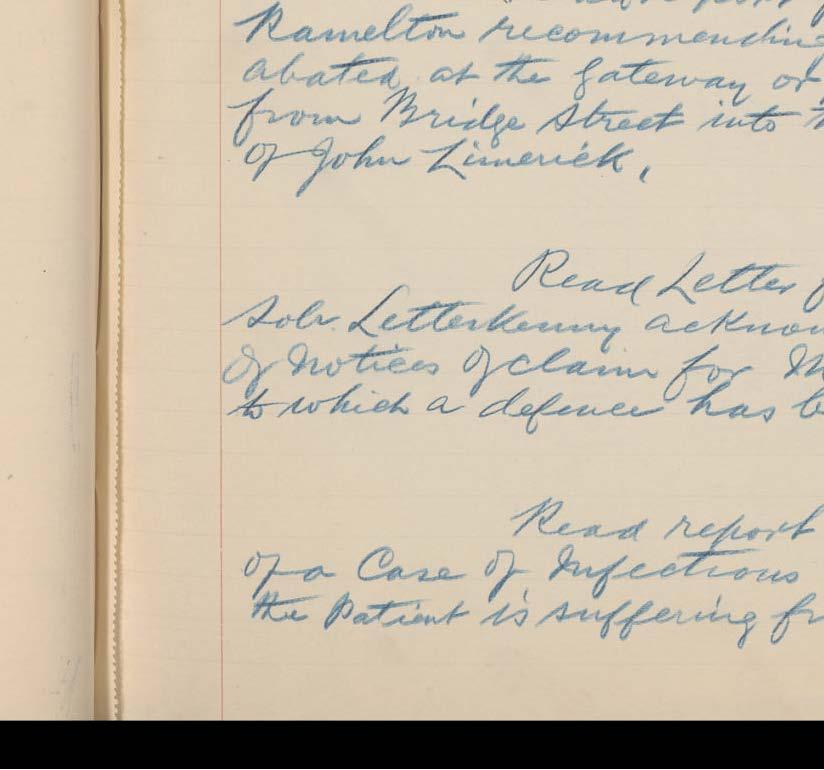 report
Ramelton recommending
abated at the gateway or
from Bridge Street into
of John Limerick.
Read Letter
Solr. Letterkenny acknow
of notices of claim for
to which a defence has b
Read report
of a Case of Infectious
the Patient is suffering fr